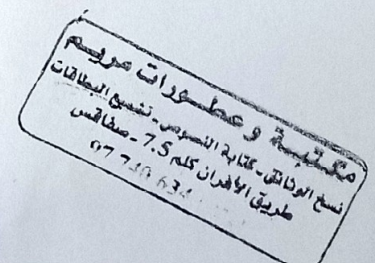 مكتبة و عطورات مريم
نسخ الوثائق - كتابة النصوص - تغليف البطاقات
طريق الأفران كلم 7.5 - صفاقس